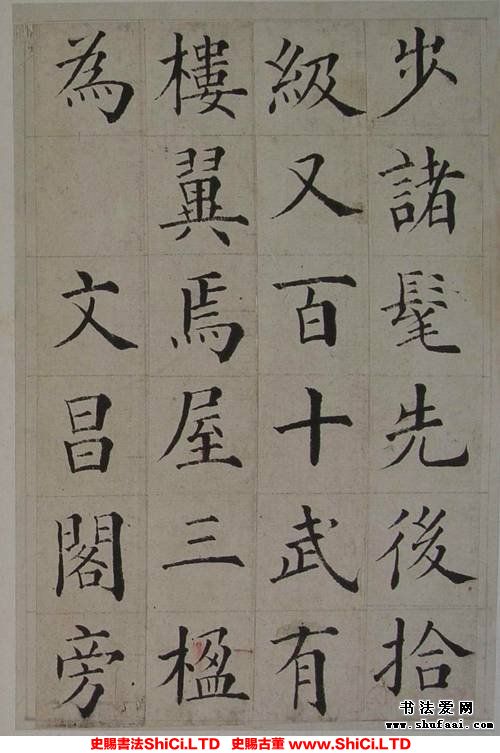 步諸髦先後拾
級又百十武有
樓翼焉屋三楹
為 文昌閣旁
书法爱网
www.shufaai.com
史賜書法ShiCi.LTD 史賜古董 www.ShiCi.LTD